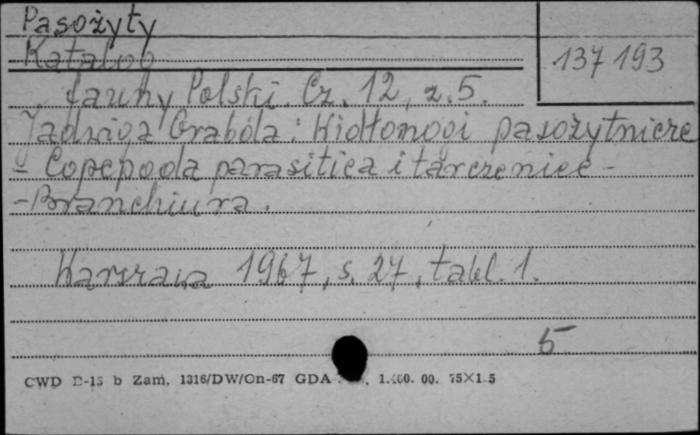 Pasożyty
Katalog
137 193
Fauny Polski. Cz. 12, z. 5.
Jadwiga Grabda: Widłonogi pasożytnicze
- Copepoda parasitica i tarczenice -
- Branchiura.
Warszawa 1967, s. 27, tabl. 1.
5
CWD D-15 b Zam. 1316/DW/On-67 GDA